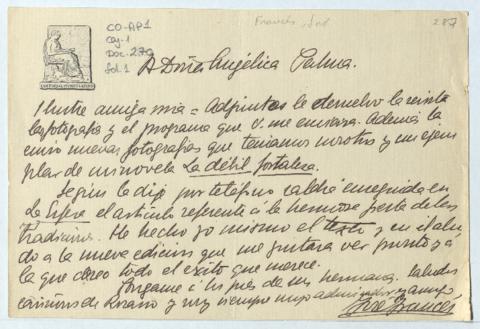 CO-AP1
Caj-1
Doc-279
Fol.1
Francés, José
287
A Doña Angélica Palma.
Ilustre amiga mia = Adjuntos le devuelvo la revista
la fotografia y el programa que V. me enviara. Además la
envio nuevas fotografias que teniamos nosotros y un ejem
plar de mi novela La débil fortaleza.
Según la dije por teléfono saldrá enseguida en
La Esfera el artículo referente á la hermosa fiesta de las
Tradiciones. He hecho yo mismo el texto y en él alu
do a la nueva edicion que me gustara ver pronto y a
la que deseo todo el exito que merece.
Póngame á los pies de su hermana. Saludos
cariñosos de Rosario y muy siempre suyo admirador y amigo
José Francés